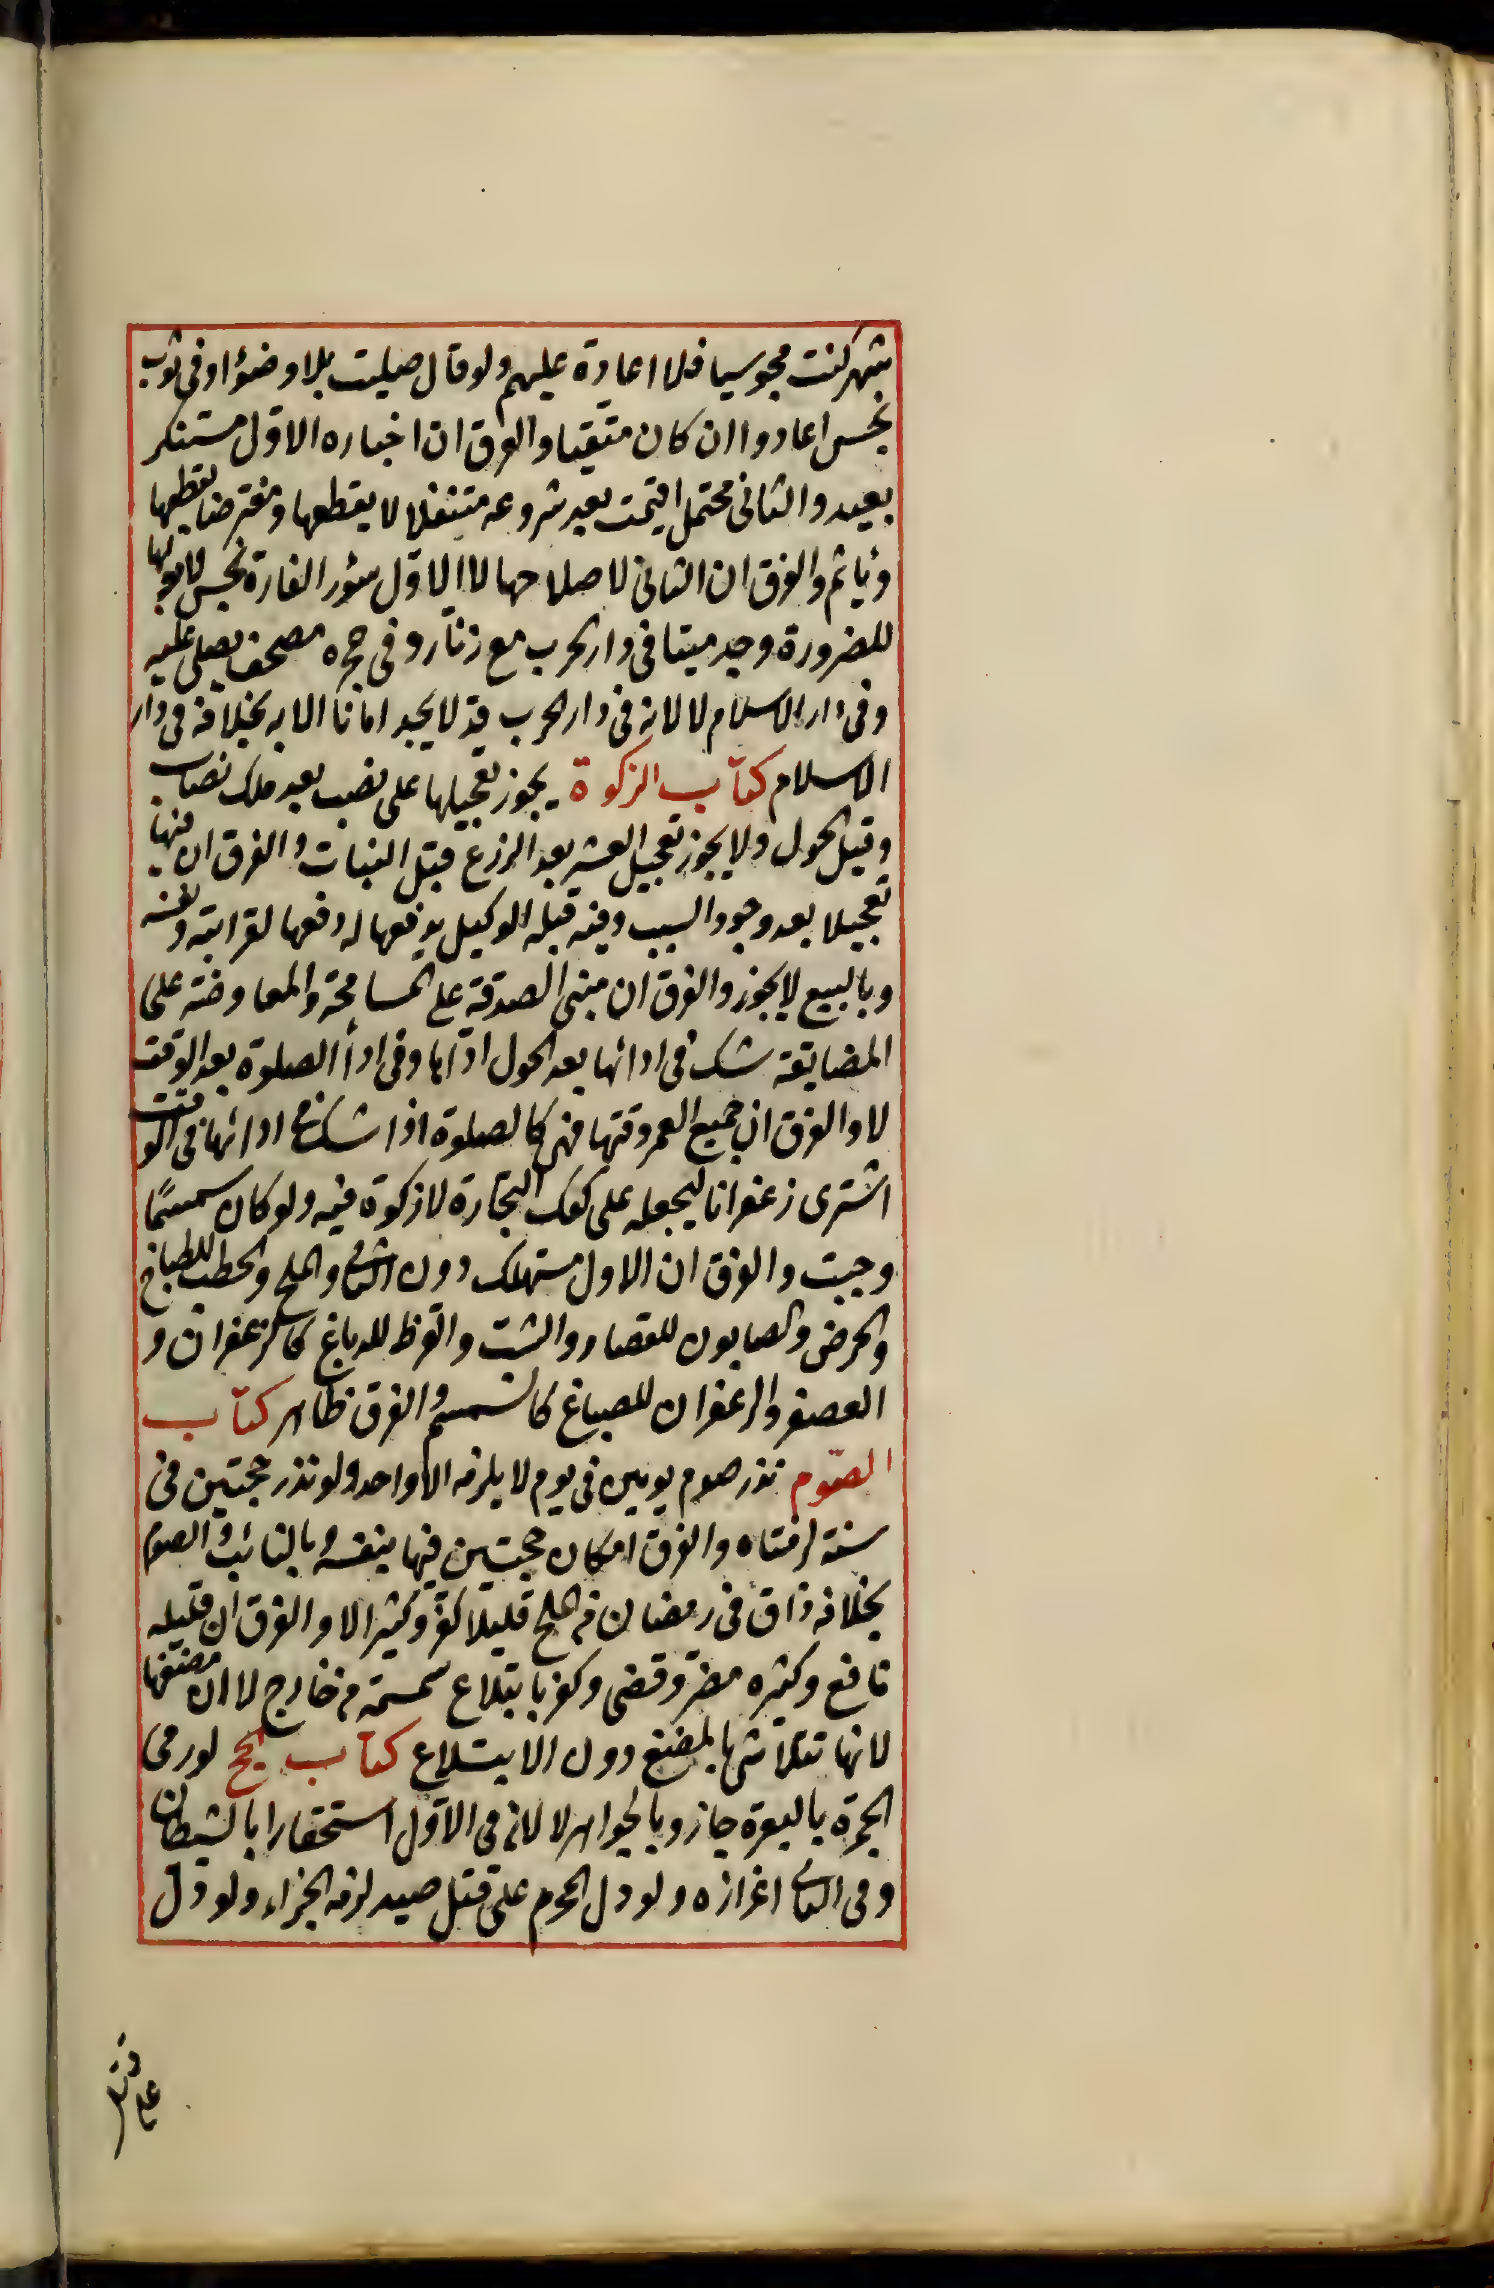 شهر كنت مجوسيا فلا اعادة عليهم ولو قال صليت بلا وضوٴ او فى ثوب
نجس اعادوا ان كان متيقنا والفرق ان اخباره الاول مستنكر
بعيد والثانى محتمل اقيمت بعد شروعه متنفلا لا يقطعها ومفترضا يقطعها
ويأثم والفرق ان الثانى لاصلاحها لا الاول سؤر الفارة نجس لا بولها
للضرورة وجد ميتا فى دار الحرب مع زنار وفى حجره مصحف يصلى عليه
وفى دار الاسلام لا لانه فى دار الحرب قد لا يجد امانا الا به بخلافه فى دار
الاسلام كتاب الزكوة يجوز تعجيلها على نصب بعد ملك نصاب
وقبل الحول ولا يجوز تعجيل العشر بعد الزرع قبل النبات والفرق ان فيها
تعجيلا بعد وجود السبب وفيه قبله الوكيل بدفعها له دفعها لقرابته ونفسه
وبالبيع لا يجوز والفرق ان مبنى الصدقة على المسامحة والمعاوضة على
المضايقة شك فى ادائها بعد الحول اداها وفى اداأ الصلوة بعد الوقت
لا والفرق ان جميع العمر وقتها فهى كالصلوة اذا شك فى ادائها فى الوقت
اشترى زعفرانا ليجعله على كعك التجارة لا زكوة فيه ولو كان سمسمًا
وجبت والفرق ان الاول مستهلك دون الثانى والملح والحطب للطباخ
والحرض والصابون للقصار والشب والقرظ للدباغ كالزعفران و
العصفر والزعفران للصباغ كالسمسم والفرق ظاهر كتاب
الصوم نذر صوم يومين فى يوم لا يلزمه الا واحد ولو نذر حجتين فى
سنة لزمتاه والفرق امكان حجتين فيها بنفسه وبالنائب والصوم
بخلافه ذاق فى رمضان من الملح قليلا كفر وكثيرا لا والفرق ان قليله
نافع وكثيره مضر وقضى وكفر بابتلاع سمسمة من خارج لا ان مضغها
لانها تتلاشى بالمضغ دون الابتلاع كتاب الحج لو رمى
الجمرة بالبعرة جاز وبالجواهر لا لانه فى الاول استحقارا بالشيطان
وفى الثانى اعزازه ولو دل المحرم على قتل صيد لزمه الجزاء ولو دل
على قتل